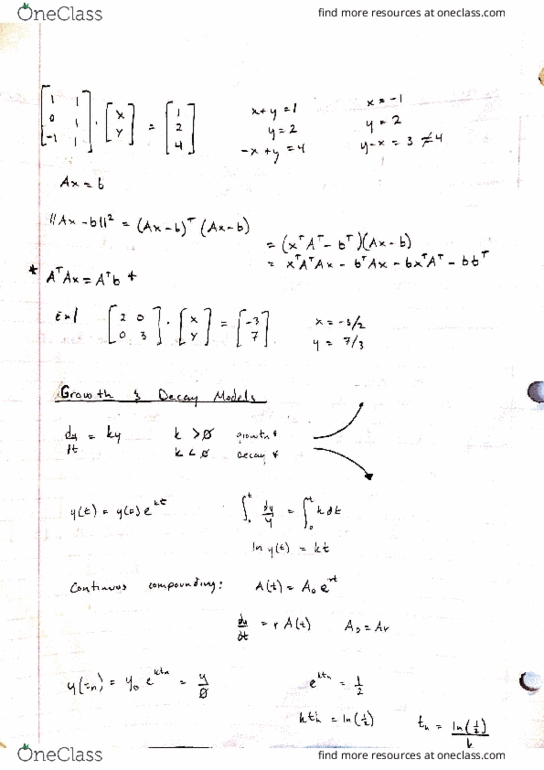 OneClass find more resources at oneclass.com
[1 1; 0 1; -1 1] · [x; y] = [1; 2; 4]
x+y=1 x=-1
y=2 y=2
-x+y=4 y-x=3≠4
Ax=b
||Ax-b||² = (Ax-b)ᵀ(Ax-b)
= (xᵀAᵀ-bᵀ)(Ax-b)
= xᵀAᵀAx - bᵀAx - bxᵀAᵀ - bbᵀ
* AᵀAx=Aᵀb *
Ex/ [2 0; 0 3] · [x; y] = [-3; 7] x=-3/2
y = 7/3
Growth & Decay Models
dy/dt = ky k>0 growth *
k<0 decay *
y(t) = y(0)e^kt ∫₀ᵗ dy/y = ∫₀ᵗ k dt
ln y(t) = kt
Continuous compounding: A(t) = A₀e^rt
dy/dt = r A(t)
e^ktn = 1/2
ktn = ln(1/2) tn = ln(1/2)/k
OneClass find more resources at oneclass.com